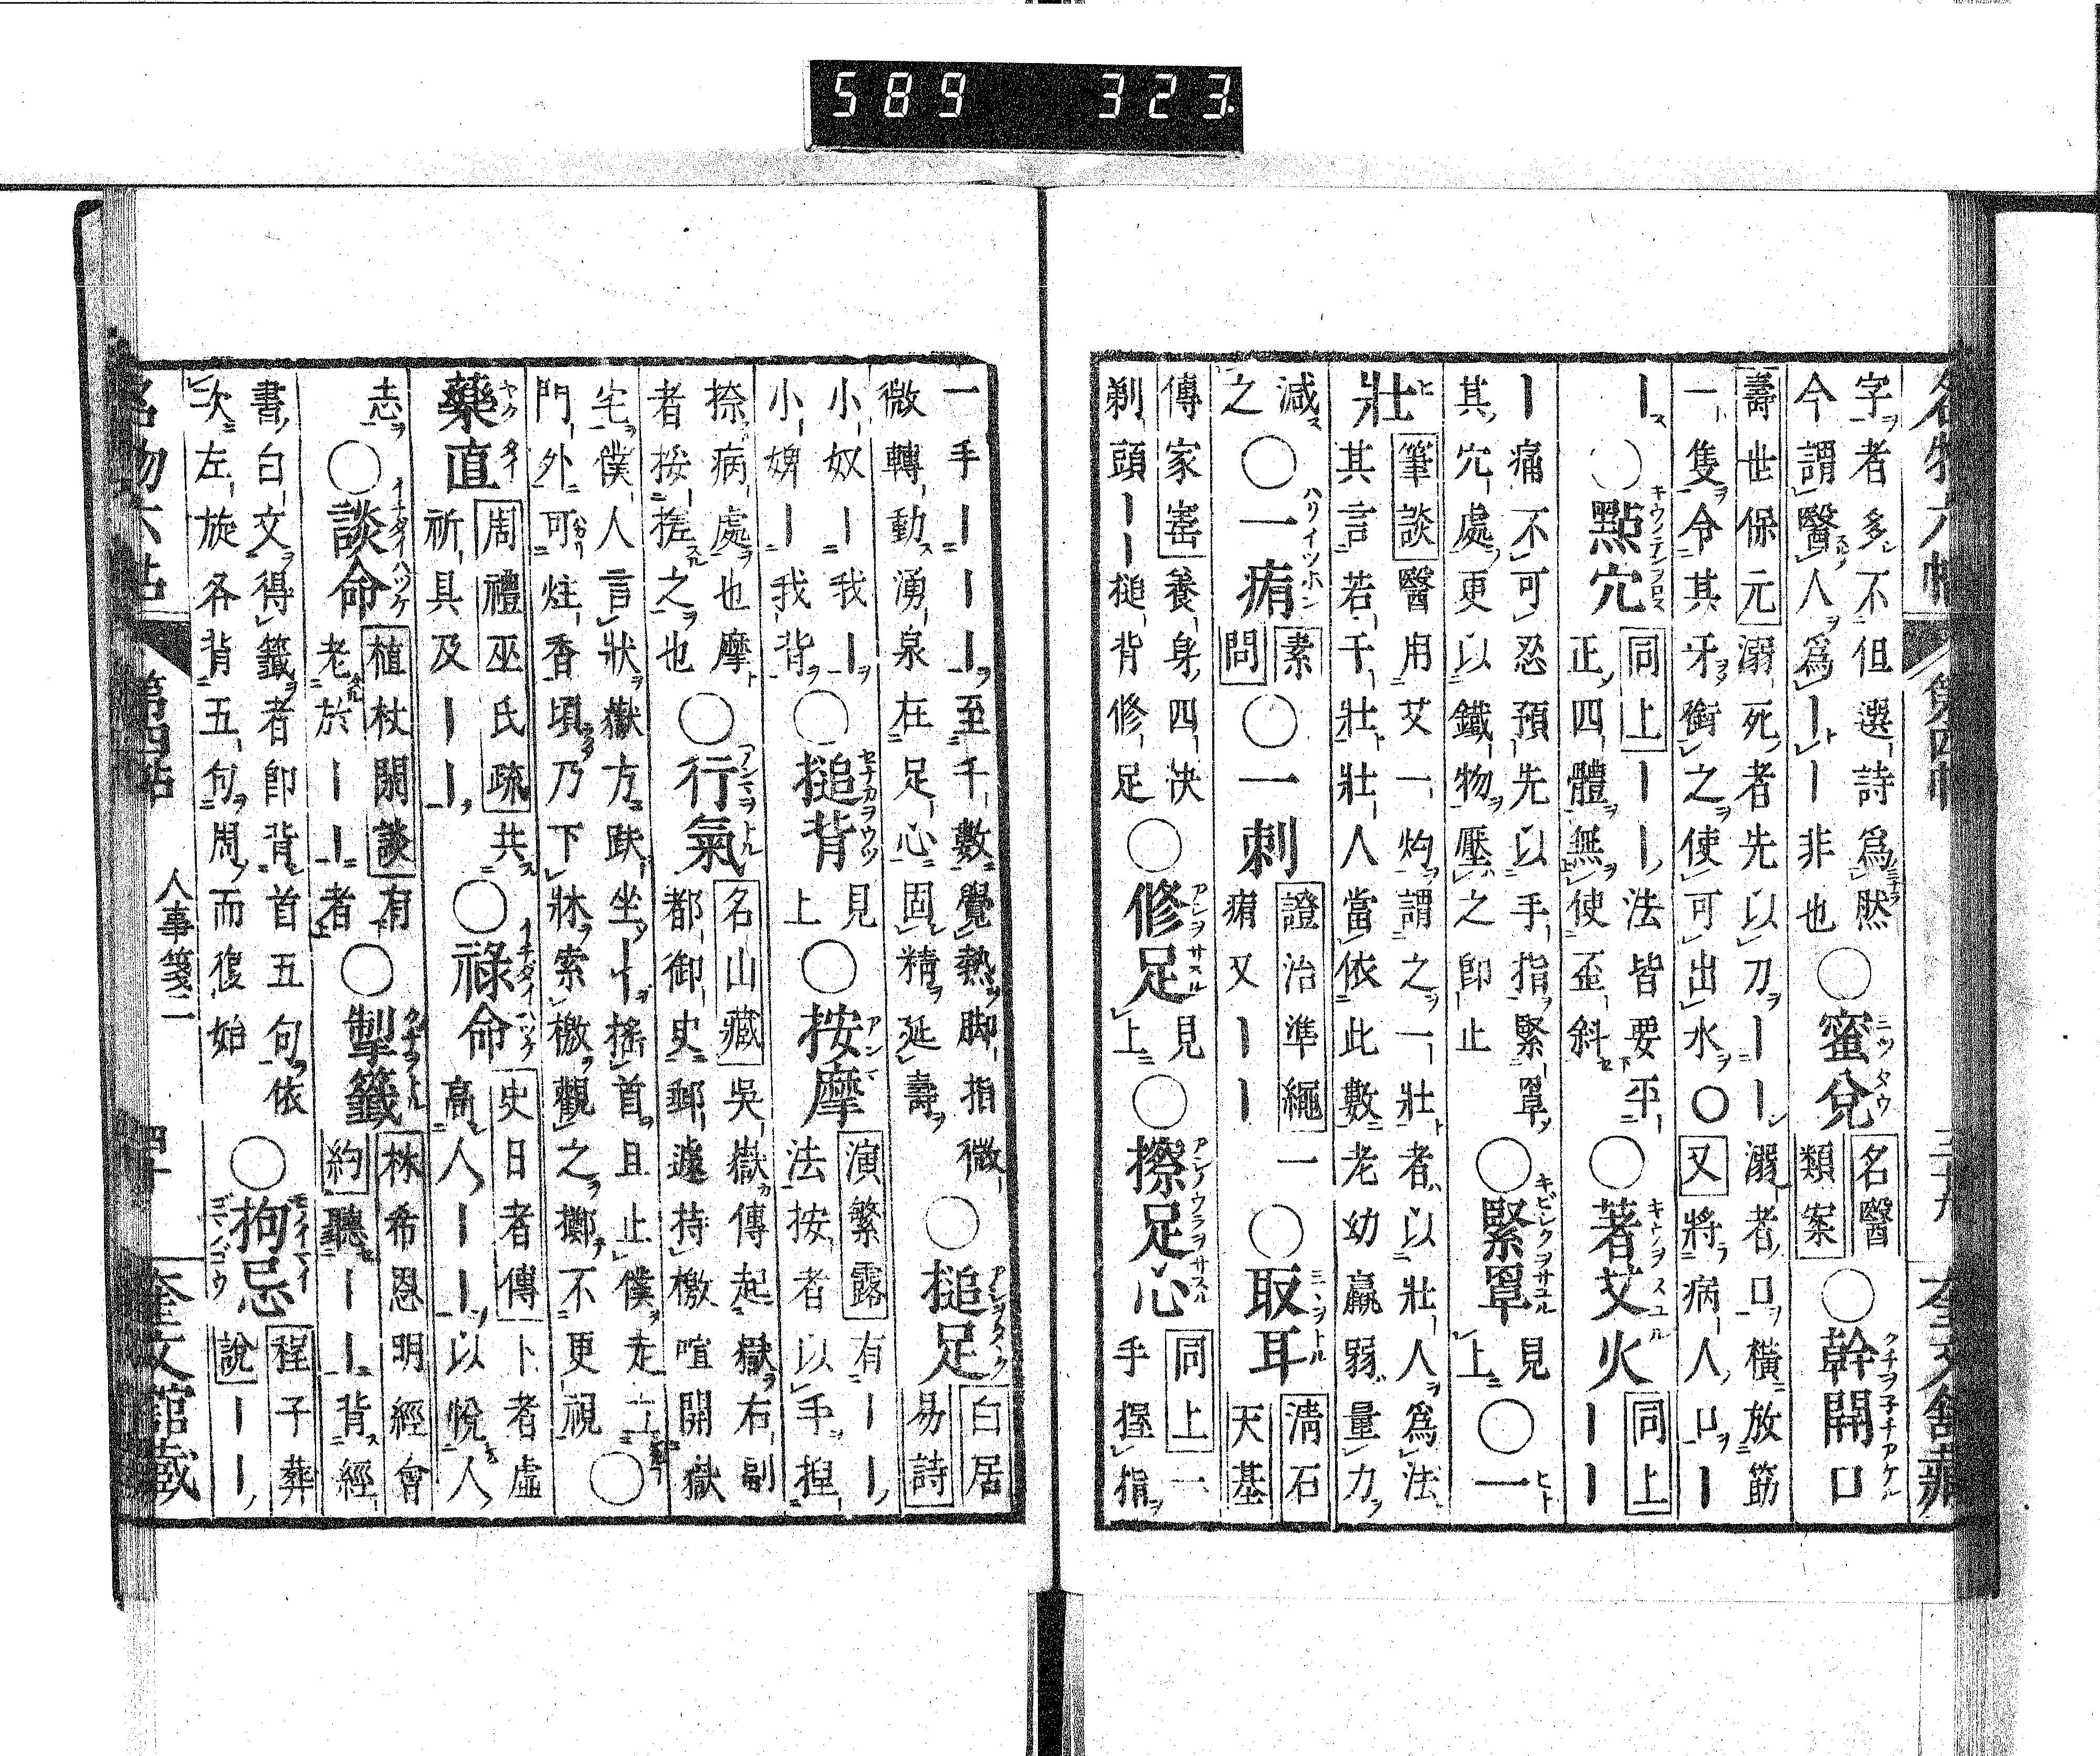 589 323
名物六帖 第四帖 三十九 奎文館藏
字者多不但選詩為然
今謂醫人為｜｜非也
○蜜兌 名醫類案
○幹開口
壽世保元 溺死者先以刀｜｜溺者口橫放筯
一隻令其牙銜之使可出水○又將病人口｜
｜○點穴 同上 ｜｜法皆要平
正四體無使歪斜
○著艾火 同上 ｜｜
｜痛不可忍預先以手指緊罩
其穴處更以鐵物壓之即止
○緊罩 見上
○一
壯 筆談 醫用艾一灼謂之一壯者以壯人為法
其言若干壯壯人當依此數老幼羸弱量力
減之
○一痏 素問
○一刺 證治準繩 一痏又｜｜
○取耳 淸石天基
傳家寶 養身四快
剃頭｜｜搥背修足
○修足 見上
○擦足心 同上 一手握指
一手｜｜｜至千數覺熱脚指微
微轉動湧泉在足心固精延壽
○搥足 白居易詩
小奴｜我｜
小婢｜我背
○搥背 見上
○按摩 演繁露 有｜｜
法按者以手捏
捺病處也摩
者按搓之也
○行氣 名山藏 吳嶽傳起嶽右副
都御史鄭遽持檄喧開嶽
宅僕人言狀嶽方趺坐｜｜搖首且止僕走立
門外可炷香頃乃下牀索檄觀之擲不更視
○
藥直 周禮巫氏疏 共
祈具及｜｜
○祿命 史日者傳 卜者虛
高人｜｜以悅人
志
○談命 植杖閑談 有
老於｜｜者
○掣籤 林希恩明經會
約 聽｜｜背經
書白文得籤者即背首五句依
次左旋各背五句周而復始
○拘忌 程子葬
說 ｜｜
名物六帖 第四帖 人事箋二 四十 奎文館藏